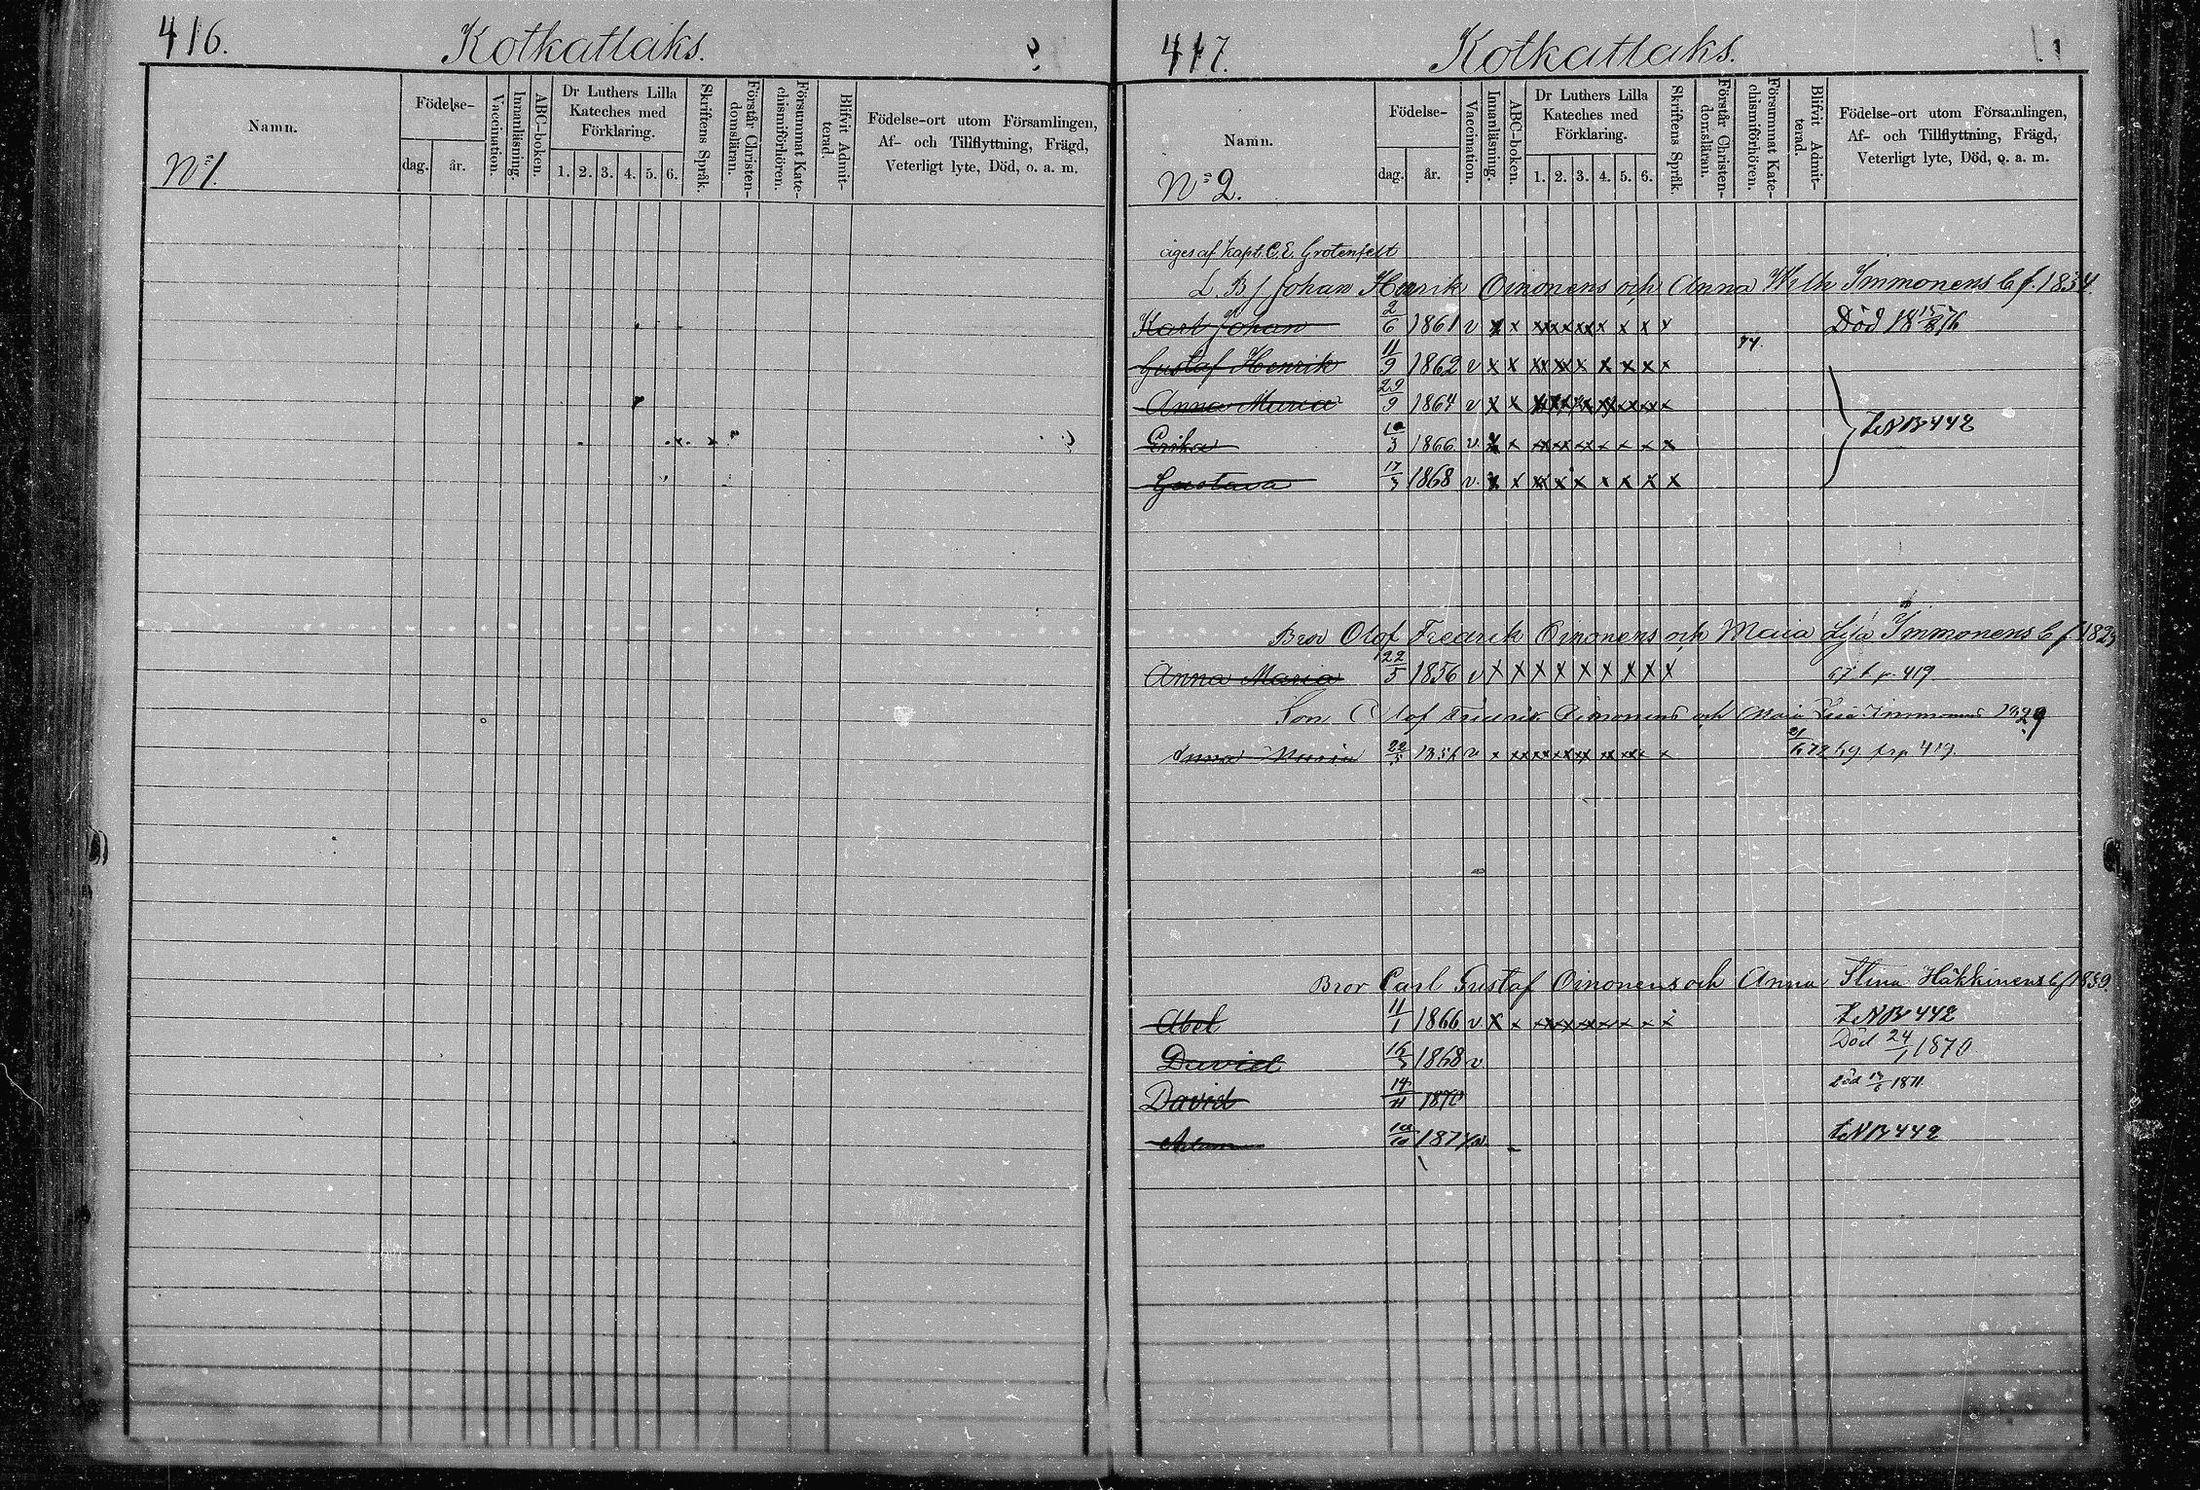 416.
Kotkatlaks.
Namn.
Födelse-
dag.
år.
Vaccination.
Innanläsning.
ABC-boken.
Dr Luthers Lilla
Kateches med
Förklaring.
1. 2. 3. 4. 5. 6.
Skriftens Språk.
Förstår Christen-
domsläran.
Försummat Kate-
chismiförhören.
Blifvit Admit-
terad.
Födelse-ort utom Församlingen,
Af- och Tillflyttning, Frägd,
Veterligt lyte, Död, o. a. m.
No 1.
417.
Kotkatlaks.
Namn.
Födelse-
dag.
år.
Vaccination.
Innanläsning.
ABC-boken.
Dr Luthers Lilla
Kateches med
Förklaring.
1. 2. 3. 4. 5. 6.
Skriftens Språk.
Förstår Christen-
domsläran.
Försummat Kate-
chismiförhören.
Blifvit Admit-
terad.
Födelse-ort utom Församlingen,
Af- och Tillflyttning, Frägd,
Veterligt lyte, Död, o. a. m.
No 2.
äges af Kapt. C. E. Grotenfelt
L. B. Johan Henrik Oinonens och Anna Wilh Immonens b f. 1834
Karl Johan 2/6 1861 v x x x x x x x x x x Död
Gustaf Henrik 11/9 1862 v x x x x x x x x x x
Anna Maria 29/9 1864 v x x x x x x x x x x
Erika 10/3 1866 v x x x x x x x x x 442
Gustava 17/3 1868 v x x x x x x x x x
Bror Olof Fredrik Oinonens och Maria Lisa Immonens b f. 1829
Anna Maria 22/5 1856 v x x x x x x x x x p. 419
Son Olof Fredrik Oinonens och Maria Lisa Immonens 1829
Anna Maria 22/5 1856 v x x x x x x x x x 419
Bror Carl Gustaf Oinonens och Anna Stina Häkkinens b f 1839
Abel 11/1 1866 v x x x x x x x x x x 442
David 16/3 1868 v Död 24/1 1870
David 14/11 1870 död 1871
Adam 1874 v 442